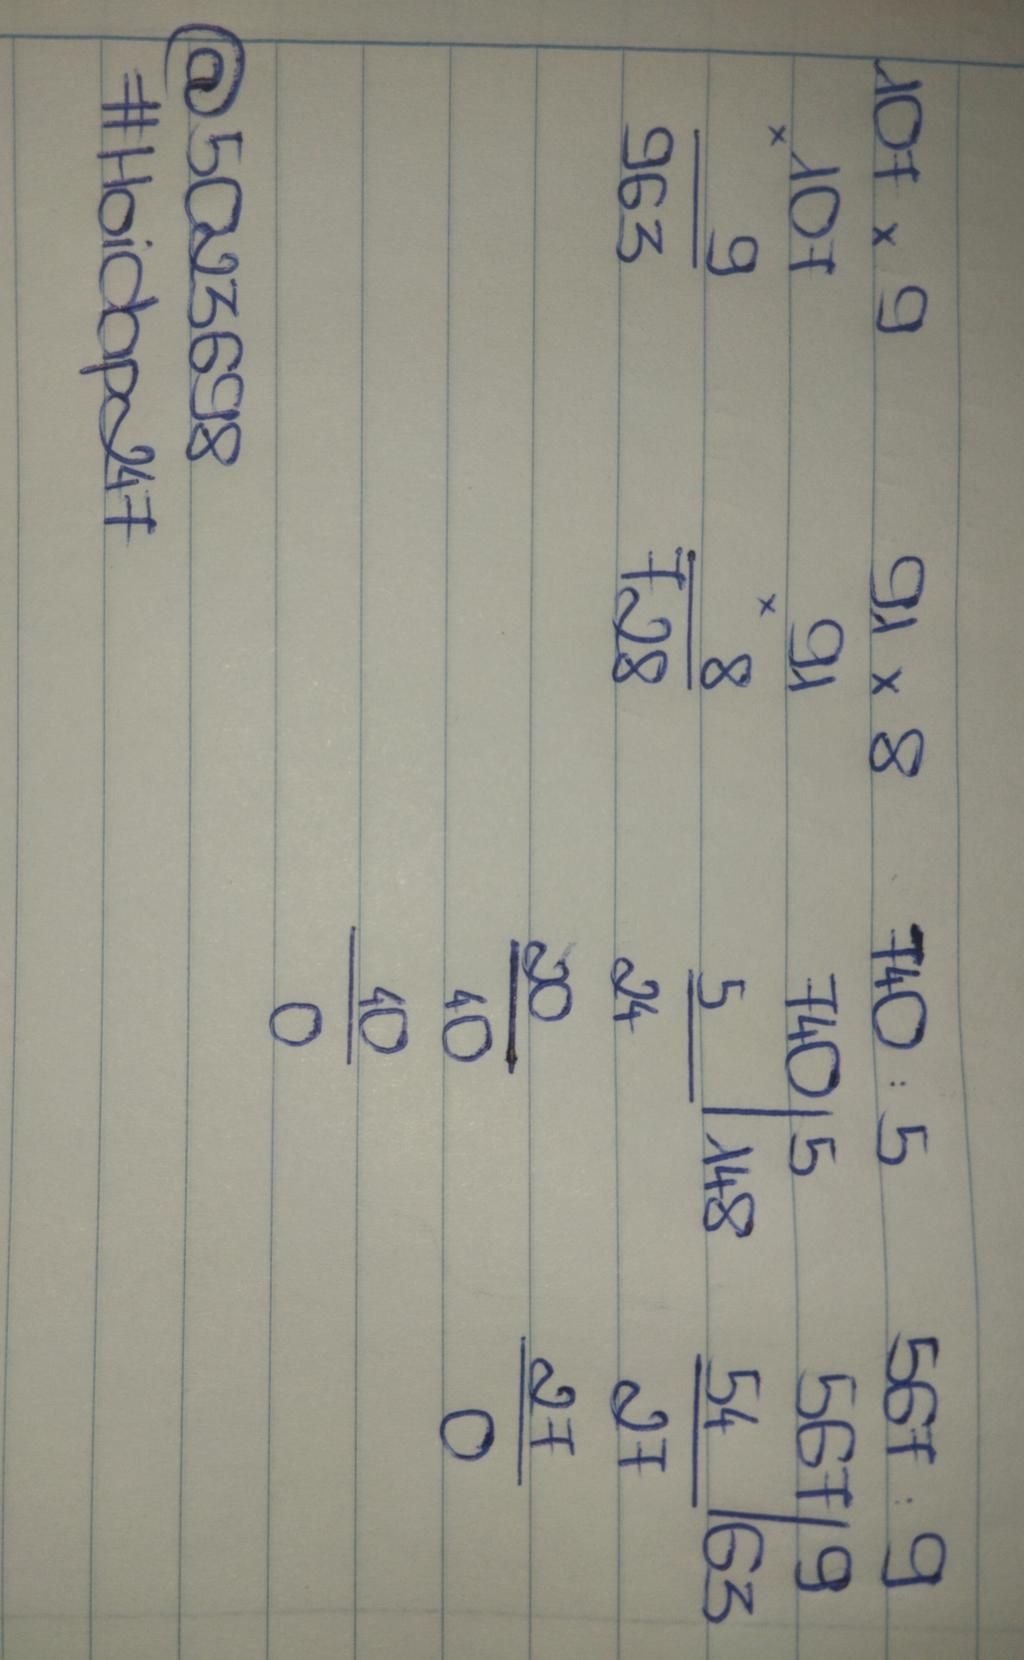 107 × 9
91 × 8
740 : 5
567 : 9
× 107
9
963
× 91
8
728
740 | 5
5 | 148
24
20
40
40
0
567 | 9
54 | 63
27
27
0
@5023698
#Hoidap247